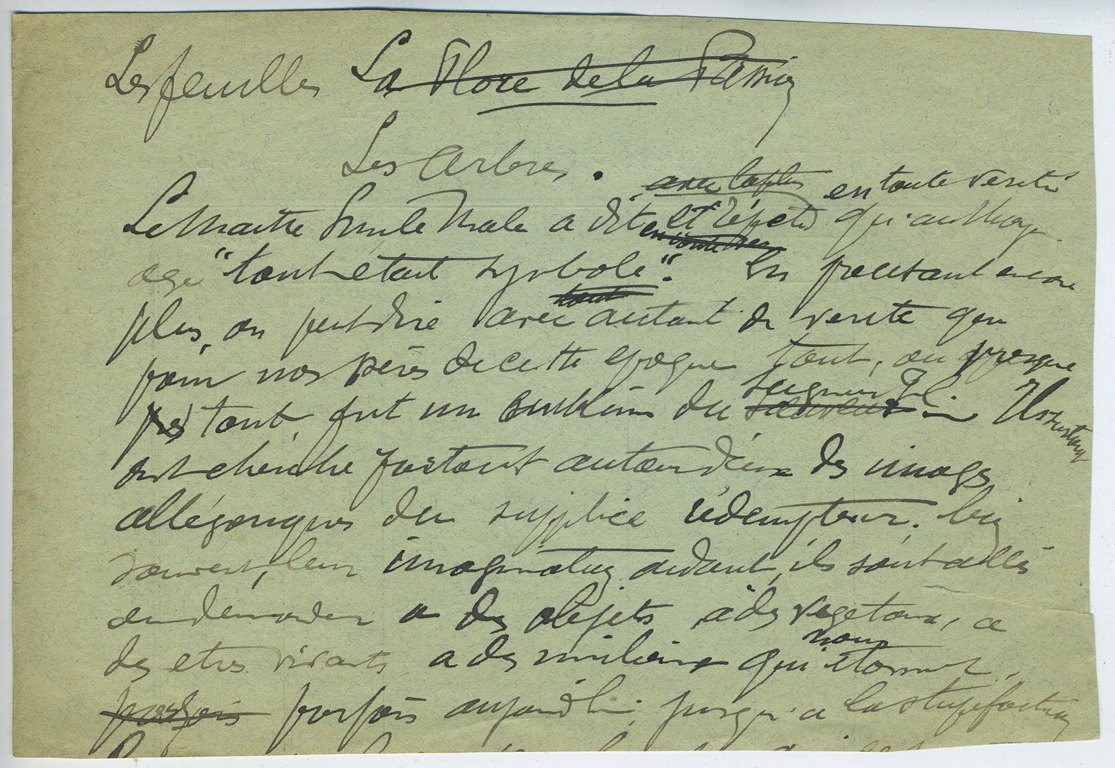 Les feuilles La Flore de la Passion
Les Arbres.
avec la plus en toute verité
Le Maitre Emile Male a dit et répété qu'au Moy.
age "tout était symbole". En précisant encore
plus, on peut dire avec autant de verité que
tout
pour nos pères de cette epoque tout, ou presque
seigneur
tout fut un du Ils
ont cherché partout autour d'eux des images
allégoriques du supplice rédempteur. bien
souvent, leur imagination aidant, ils sont allés
en demander a des objets, à des vegetaux, a
nous
des etres vivants a des qui étonnent,
parfois parfois aujourd'hui, jusqu'a la stupéfaction